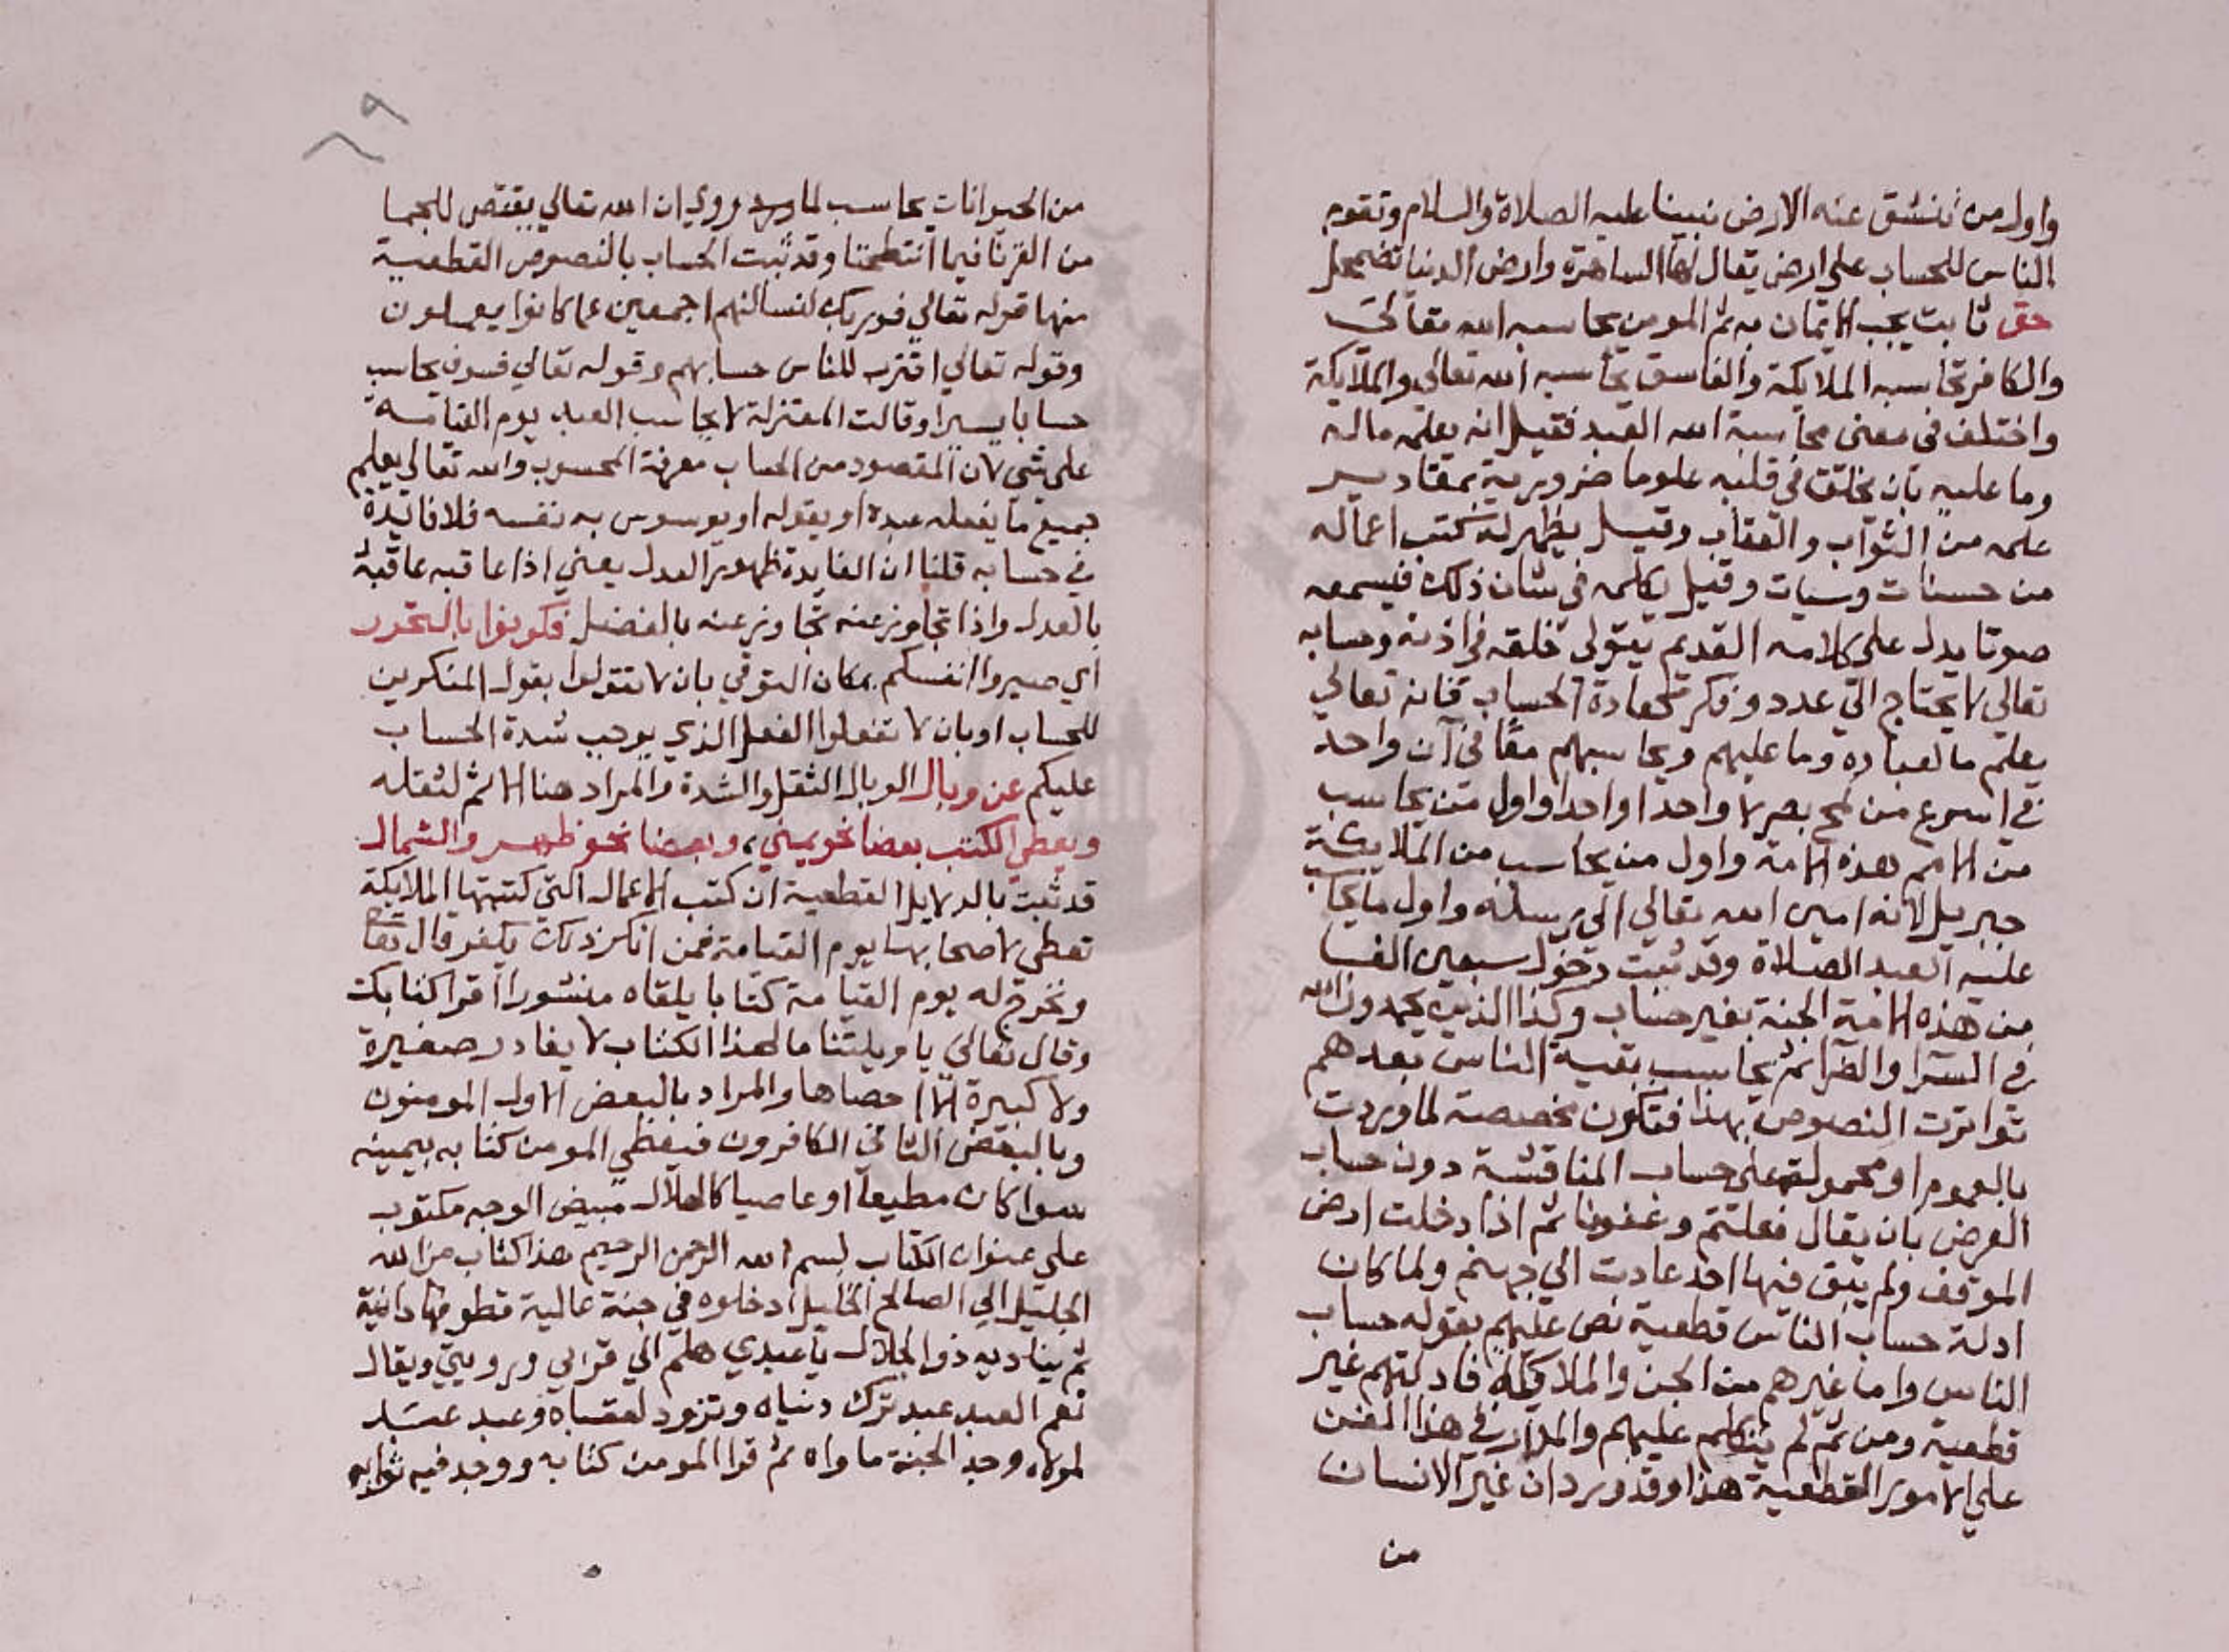 واول من تنشق عنه الارض نبينا عليه الصلاة والسلام وتقوم
الناس للحساب علي ارض يقال لها الساهرة وارض الدنيا تضمحل
حق ثابت يجب الايمان به ثم المومن يحاسبه الله تعالي
والكافر تحاسبه الملايكة والفاسق يحاسبه الله تعالي والملايكة
واختلف في معني محاسبة الله العبد فقيل انه يعلمه ماله
وما عليه بان يخلق في قلبه علوما ضرورية بمقادير
علمه من الثواب والعقاب وقيل يظهر له كتب اعماله
من حسنات وسيات وقيل يكلمه في شان ذلك فيسمعه
صوتا يدل علي كلامه القديم يتولي خلقه في اذنه وحسابه
تعالي لا يحتاج الي عدد وفكر كعادة الحساب فانه تعالي
يعلم ما لعباده وما عليهم ويحاسبهم معا في آن واحد
في اسرع من لمح بصر لا واحدا واحدا واول من يحاسب
من الامم هذه الامة واول من يحاسب من الملايكة
جبريل لانه امين الله تعالي الي رسله واول ما يحاسب
عليه العبد الصلاة وقد ثبت دخول سبعين الفا
من هذه الامة الجنة بغير حساب وكذا الذين يحمدون الله
في السرا والضرا ثم يحاسب بقية الناس بعدهم
تواترت النصوص بهذا فتكون مخصصة لما وردت
بالعموم او محمولة علي حساب المناقشة دون حساب
العرض بان يقال فعلتم وغفرنا ثم اذا دخلت ارض
الموقف ولم يبق فيها احد عادت الي جهنم ولما كان
ادلة حساب الناس قطعية نص عليهم بقوله حساب
الناس واما غيرهم من الجن والملايكة فادلتهم غير
قطعية ومن ثم لم يتكلم عليهم والمدار في هذا الفن
علي الامور القطعية هذا وقد ورد ان غير الانسان
من
٦٩
من الحيوانات يحاسب لما ورد وروي ان الله تعالي يقتص للجما
من القرنا فيما انتطحتا وقد ثبت الحساب بالنصوص القطعية
منها قوله تعالي فوربك لنسالنهم اجمعين عما كانوا يعملون
وقوله تعالي اقترب للناس حسابهم وقوله تعالي فسوف يحاسب
حسابا يسيرا وقالت المعتزلة لا يحاسب العبد يوم القيامة
علي شي لان المقصود من الحساب معرفة المحسوب والله تعالي يعلم
جميع ما يفعله عبده او يقوله او يوسوس به نفسه فلا فائدة
في حسابه قلنا ان الفايدة ظهور العدل يعني اذا عاقبه عاقبه
بالعدل واذا تجاوز عنه تجاوز عنه بالفضل فكونوا بالتحرز
اي صيروا انفسكم بمكان التوقي بان لا تقولوا بقول المنكرين
للحساب او بان لا تفعلوا الفعل الذي يوجب شدة الحساب
عليكم عن وبال الوبال الثقل والشدة والمراد هنا الاثم لثقله
ويعطي الكتب بعضا نحو يمني، وبعضا نحو ظهر والشمال
قد ثبت بالدلايل القطعية ان كتب الاعمال التي كتبتها الملايكة
تعطي لاصحابها يوم القيامة فمن انكر ذلك يكفر قال تعا
ونخرج له يوم القيامة كتابا يلقاه منشورا اقرا كتابك
وقال تعالي يا ويلتنا ما لهذا الكتاب لا يغادر صغيرة
ولا كبيرة الا احصاها والمراد بالبعض الاول المومنون
وبالبعض الثاني الكافرون فيعطي المومن كتابه بيمينه
سوا كان مطيعا او عاصيا كالهلال مبيض الوجه مكتوب
علي عنوان الكتاب بسم الله الرحمن الرحيم هذا كتاب من الله
الجليل الي الصالح الخليل ادخلوه في جنة عالية قطوفها دانية
ثم يناديه ذو الجلال يا عبدي هلم الي قرابي ورويتي ويقال
نعم العبد عبد ترك دنياه وتزود لعقباه وعبد عبد
لمولاه وجد الجنة ماواه ثم قرا المومن كتابه ووجد فيه ثوابه